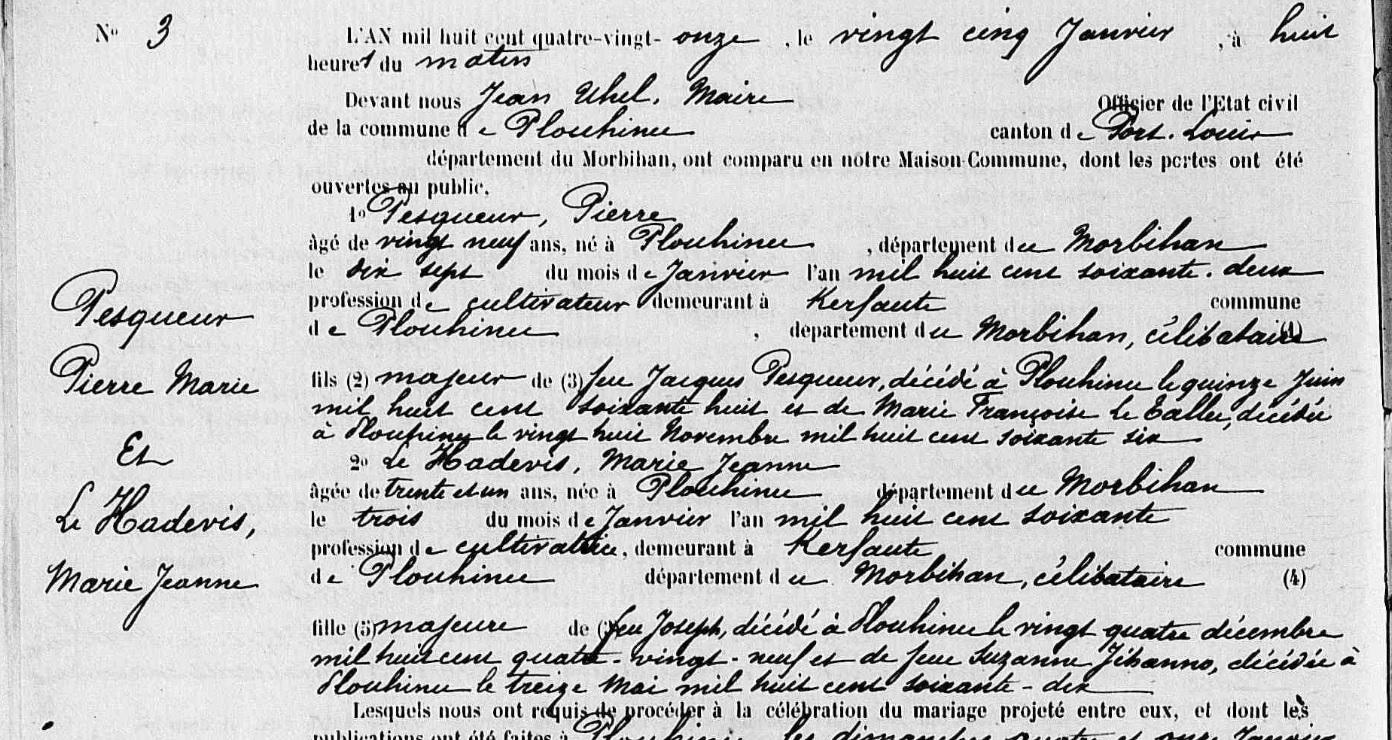 N° 3
L'AN mil huit cent quatre-vingt- onze , le vingt cinq Janvier , à huit
heures du matin
Devant nous Jean Uhel. Maire Officier de l'Etat civil
de la commune de Plouhinec canton de Port. Louis
département du Morbihan, ont comparu en notre Maison-Commune, dont les portes ont été
ouvertes au public,
1° Pesqueur, Pierre
âgé de vingt neuf ans, né à Plouhinec , département du Morbihan
le dix sept du mois de Janvier l'an mil huit cent soixante. deux
profession de cultivateur demeurant à Kersaute commune
de Plouhinec , département du Morbihan, célibataire (4)
fils (2) majeur de (3) feu Jacques Pesqueur, décédé à Plouhinec le quinze Juin
mil huit cent soixante huit et de Marie Françoise Le Tallec, décédée
à Plouhinec le vingt huit Novembre mil huit cent soixante six
2° Le Hadevis, Marie Jeanne
âgée de trente et un ans, née à Plouhinec département du Morbihan
le trois du mois de Janvier l'an mil huit cent soixante
profession de cultivatrice, demeurant à Kersaute commune
de Plouhinec département du Morbihan, célibataire (4)
fille (5) majeure de feu Joseph, décédé à Plouhinec le vingt quatre décembre
mil huit cent quatre-vingt-neuf et de feue Suzanne Jéhanno, décédée à
Plouhinec le treize Mai mil huit cent soixante-dix
Lesquels nous ont requis de procéder à la célébration du mariage projeté entre eux, et dont les
publications ont été faites à Plouhinec les dimanches quatre et onze Janvier
Pesqueur
Pierre Marie
Et
Le Hadevis,
Marie Jeanne